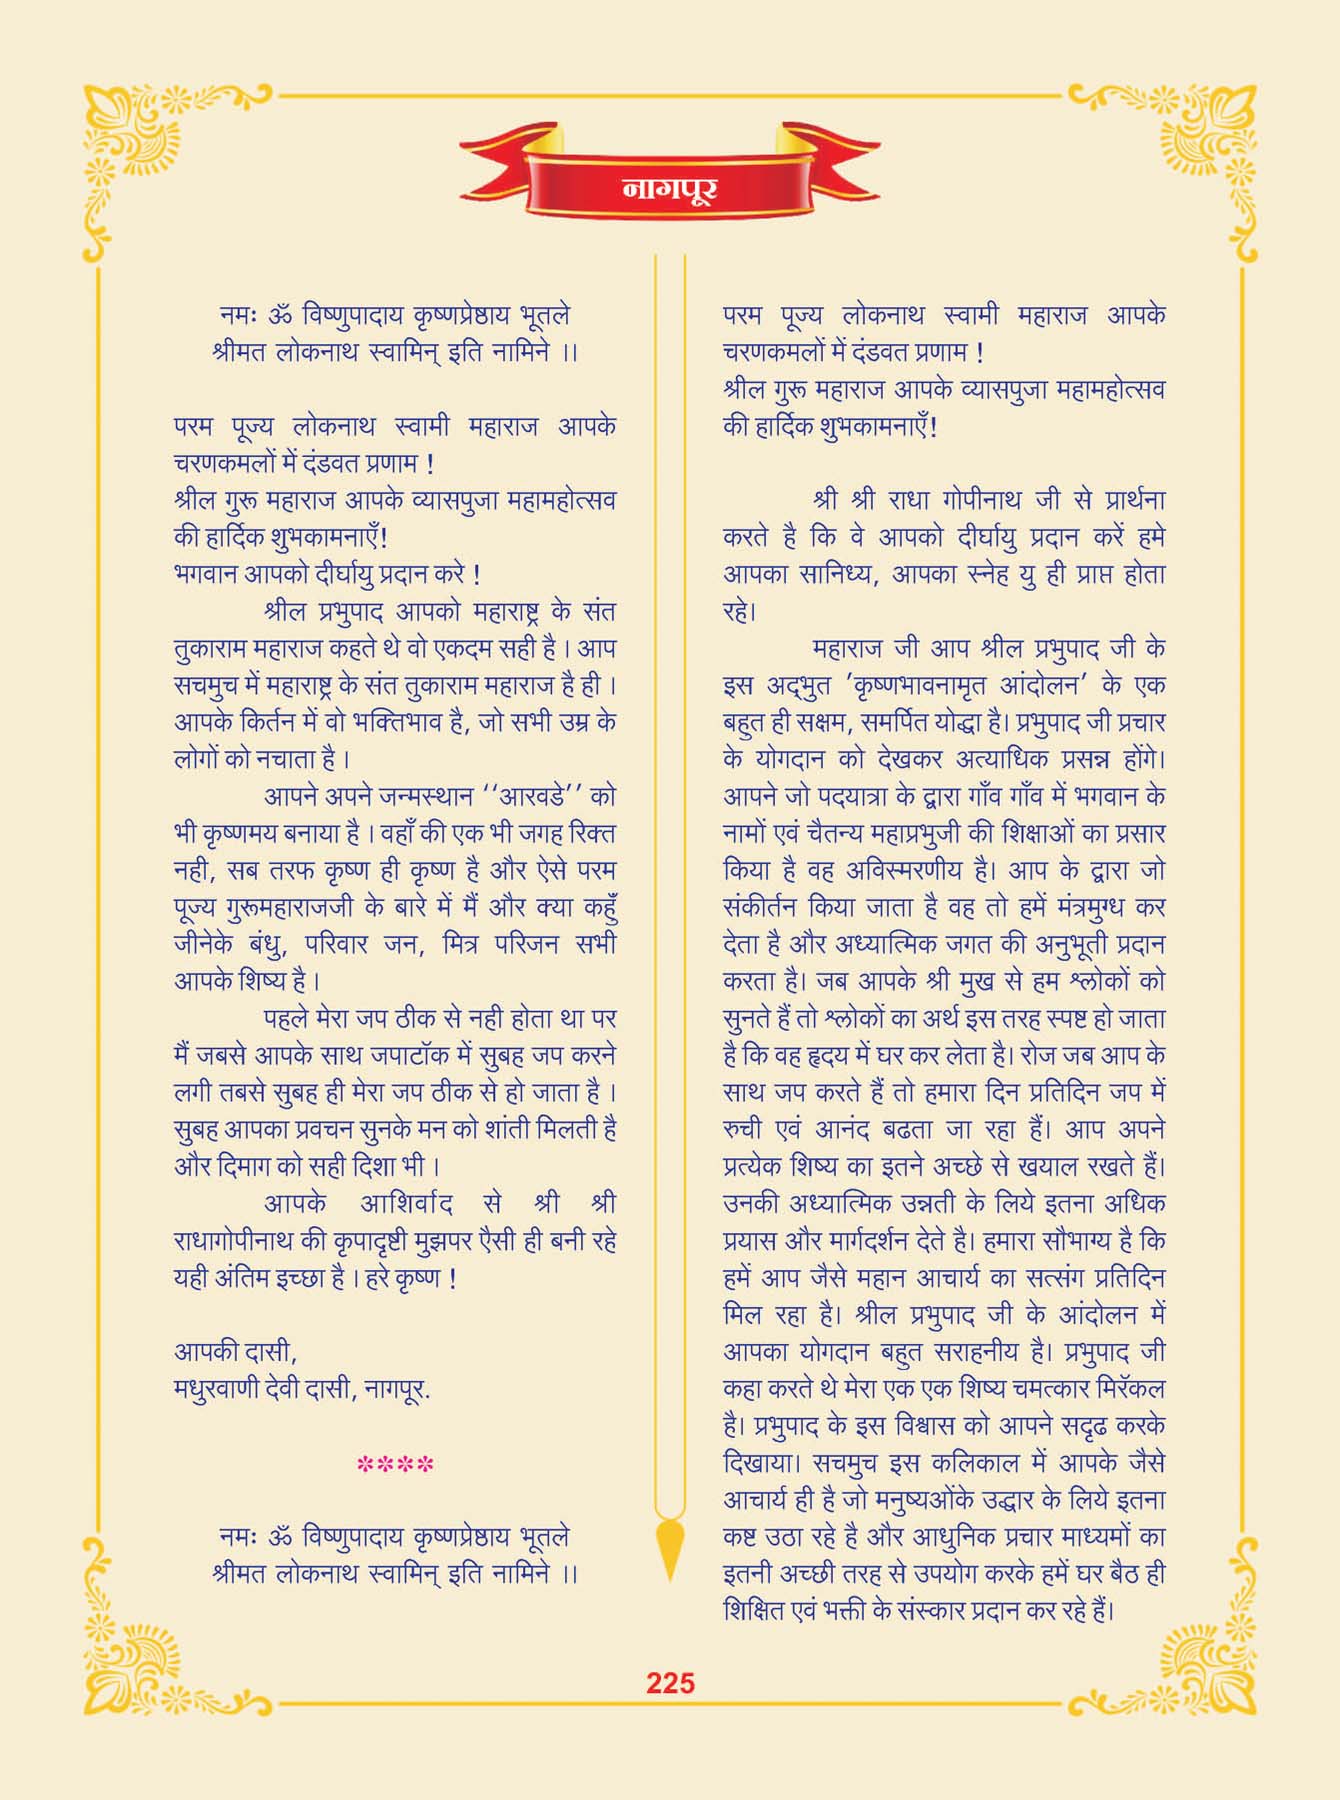 नागपूर
नमः ॐ विष्णुपादाय कृष्णप्रेष्ठाय भूतले
श्रीमत लोकनाथ स्वामिन् इति नामिने ।।
परम पूज्य लोकनाथ स्वामी महाराज आपके
चरणकमलों में दंडवत प्रणाम !
श्रील गुरू महाराज आपके व्यासपुजा महामहोत्सव
की हार्दिक शुभकामनाएँ!
भगवान आपको दीर्घायु प्रदान करे !
श्रील प्रभुपाद आपको महाराष्ट्र के संत
तुकाराम महाराज कहते थे वो एकदम सही है । आप
सचमुच में महाराष्ट्र के संत तुकाराम महाराज है ही ।
आपके किर्तन में वो भक्तिभाव है, जो सभी उम्र के
लोगों को नचाता है ।
आपने अपने जन्मस्थान ‘‘आरवडे’’ को
भी कृष्णमय बनाया है । वहाँ की एक भी जगह रिक्त
नही, सब तरफ कृष्ण ही कृष्ण है और ऐसे परम
पूज्य गुरूमहाराजजी के बारे में मैं और क्या कहुँ
जीनेके बंधु, परिवार जन, मित्र परिजन सभी
आपके शिष्य है ।
पहले मेरा जप ठीक से नही होता था पर
मैं जबसे आपके साथ जपाटॉक में सुबह जप करने
लगी तबसे सुबह ही मेरा जप ठीक से हो जाता है ।
सुबह आपका प्रवचन सुनके मन को शांती मिलती है
और दिमाग को सही दिशा भी ।
आपके आशिर्वाद से श्री श्री
राधागोपीनाथ की कृपादृष्टी मुझपर एैसी ही बनी रहे
यही अंतिम इच्छा है । हरे कृष्ण !
आपकी दासी,
मधुरवाणी देवी दासी, नागपूर.
****
नमः ॐ विष्णुपादाय कृष्णप्रेष्ठाय भूतले
श्रीमत लोकनाथ स्वामिन् इति नामिने ।।
परम पूज्य लोकनाथ स्वामी महाराज आपके
चरणकमलों में दंडवत प्रणाम !
श्रील गुरू महाराज आपके व्यासपुजा महामहोत्सव
की हार्दिक शुभकामनाएँ!
श्री श्री राधा गोपीनाथ जी से प्रार्थना
करते है कि वे आपको दीर्घायु प्रदान करें हमे
आपका सानिध्य, आपका स्नेह यु ही प्राप्त होता
रहे।
महाराज जी आप श्रील प्रभुपाद जी के
इस अद्‌भुत ’कृष्णभावनामृत आंदोलन’ के एक
बहुत ही सक्षम, समर्पित योद्धा है। प्रभुपाद जी प्रचार
के योगदान को देखकर अत्याधिक प्रसन्न होंगे।
आपने जो पदयात्रा के द्वारा गाँव गाँव में भगवान के
नामों एवं चैतन्य महाप्रभुजी की शिक्षाओं का प्रसार
किया है वह अविस्मरणीय है। आप के द्वारा जो
संकीर्तन किया जाता है वह तो हमें मंत्रमुग्ध कर
देता है और अध्यात्मिक जगत की अनुभूती प्रदान
करता है। जब आपके श्री मुख से हम श्लोकों को
सुनते हैं तो श्लोकों का अर्थ इस तरह स्पष्ट हो जाता
है कि वह हृदय में घर कर लेता है। रोज जब आप के
साथ जप करते हैं तो हमारा दिन प्रतिदिन जप में
रुची एवं आनंद बढता जा रहा हैं। आप अपने
प्रत्येक शिष्य का इतने अच्छे से खयाल रखते हैं।
उनकी अध्यात्मिक उन्नती के लिये इतना अधिक
प्रयास और मार्गदर्शन देते है। हमारा सौभाग्य है कि
हमें आप जैसे महान आचार्य का सत्संग प्रतिदिन
मिल रहा है। श्रील प्रभुपाद जी के आंदोलन में
आपका योगदान बहुत सराहनीय है। प्रभुपाद जी
कहा करते थे मेरा एक एक शिष्य चमत्कार मिरॅकल
है। प्रभुपाद के इस विश्वास को आपने सदृढ करके
दिखाया। सचमुच इस कलिकाल में आपके जैसे
आचार्य ही है जो मनुष्यओंके उद्धार के लिये इतना
कष्ट उठा रहे है और आधुनिक प्रचार माध्यमों का
इतनी अच्छी तरह से उपयोग करके हमें घर बैठ ही
शिक्षित एवं भक्ती के संस्कार प्रदान कर रहे हैं।
225